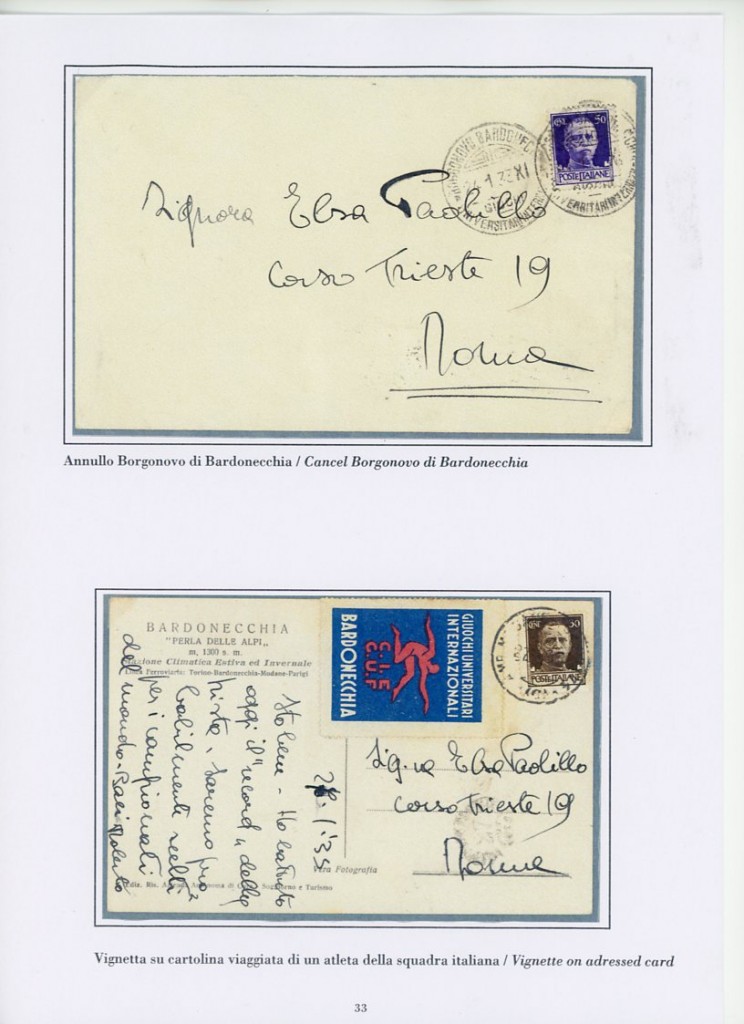 BORGONOVO BARDONECC
1.33 XI
UNIVERSITARI INTERN
50
POSTE ITALIANE
UNIVERSITARI INTERN
Signora Elsa Paolillo
Corso Trieste 19
Roma
Annullo Borgonovo di Bardonecchia / Cancel Borgonovo di Bardonecchia
BARDONECCHIA
"PERLA DELLE ALPI„
m. 1300 s. m.
Stazione Climatica Estiva ed Invernale
Linea Ferroviaria: Torino-Bardonecchia-Modane-Parigi
GIUOCHI UNIVERSITARI
INTERNAZIONALI
C.I.E.
G.U.F
BARDONECCHIA
50
POSTE ITALIANE
1°33
Sto bene - Ho battuto
oggi il "record„ della
pista. Saremo pro
babilmente scelti
per i campionati
del mondo. Baci Roberto
Sig.na Elsa Paolillo
corso Trieste 19
Roma
Vera Fotografia
Ediz. Ris. Autonoma di Soggiorno e Turismo
Vignetta su cartolina viaggiata di un atleta della squadra italiana / Vignette on adressed card
33